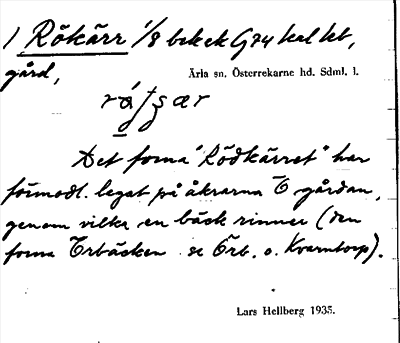 / Rökärr 1/8 bebek G74 kal kt,
gård,
Ärla sn. Österrekarne hd. Sdml. l.
Det forna "Rödkärret" har
förmodl. legat på åkrarna Ö gården,
genom vilka en bäck rinner (den
forna Örbäcken se Örb. o. Kvarntorp).
Lars Hellberg 1935.